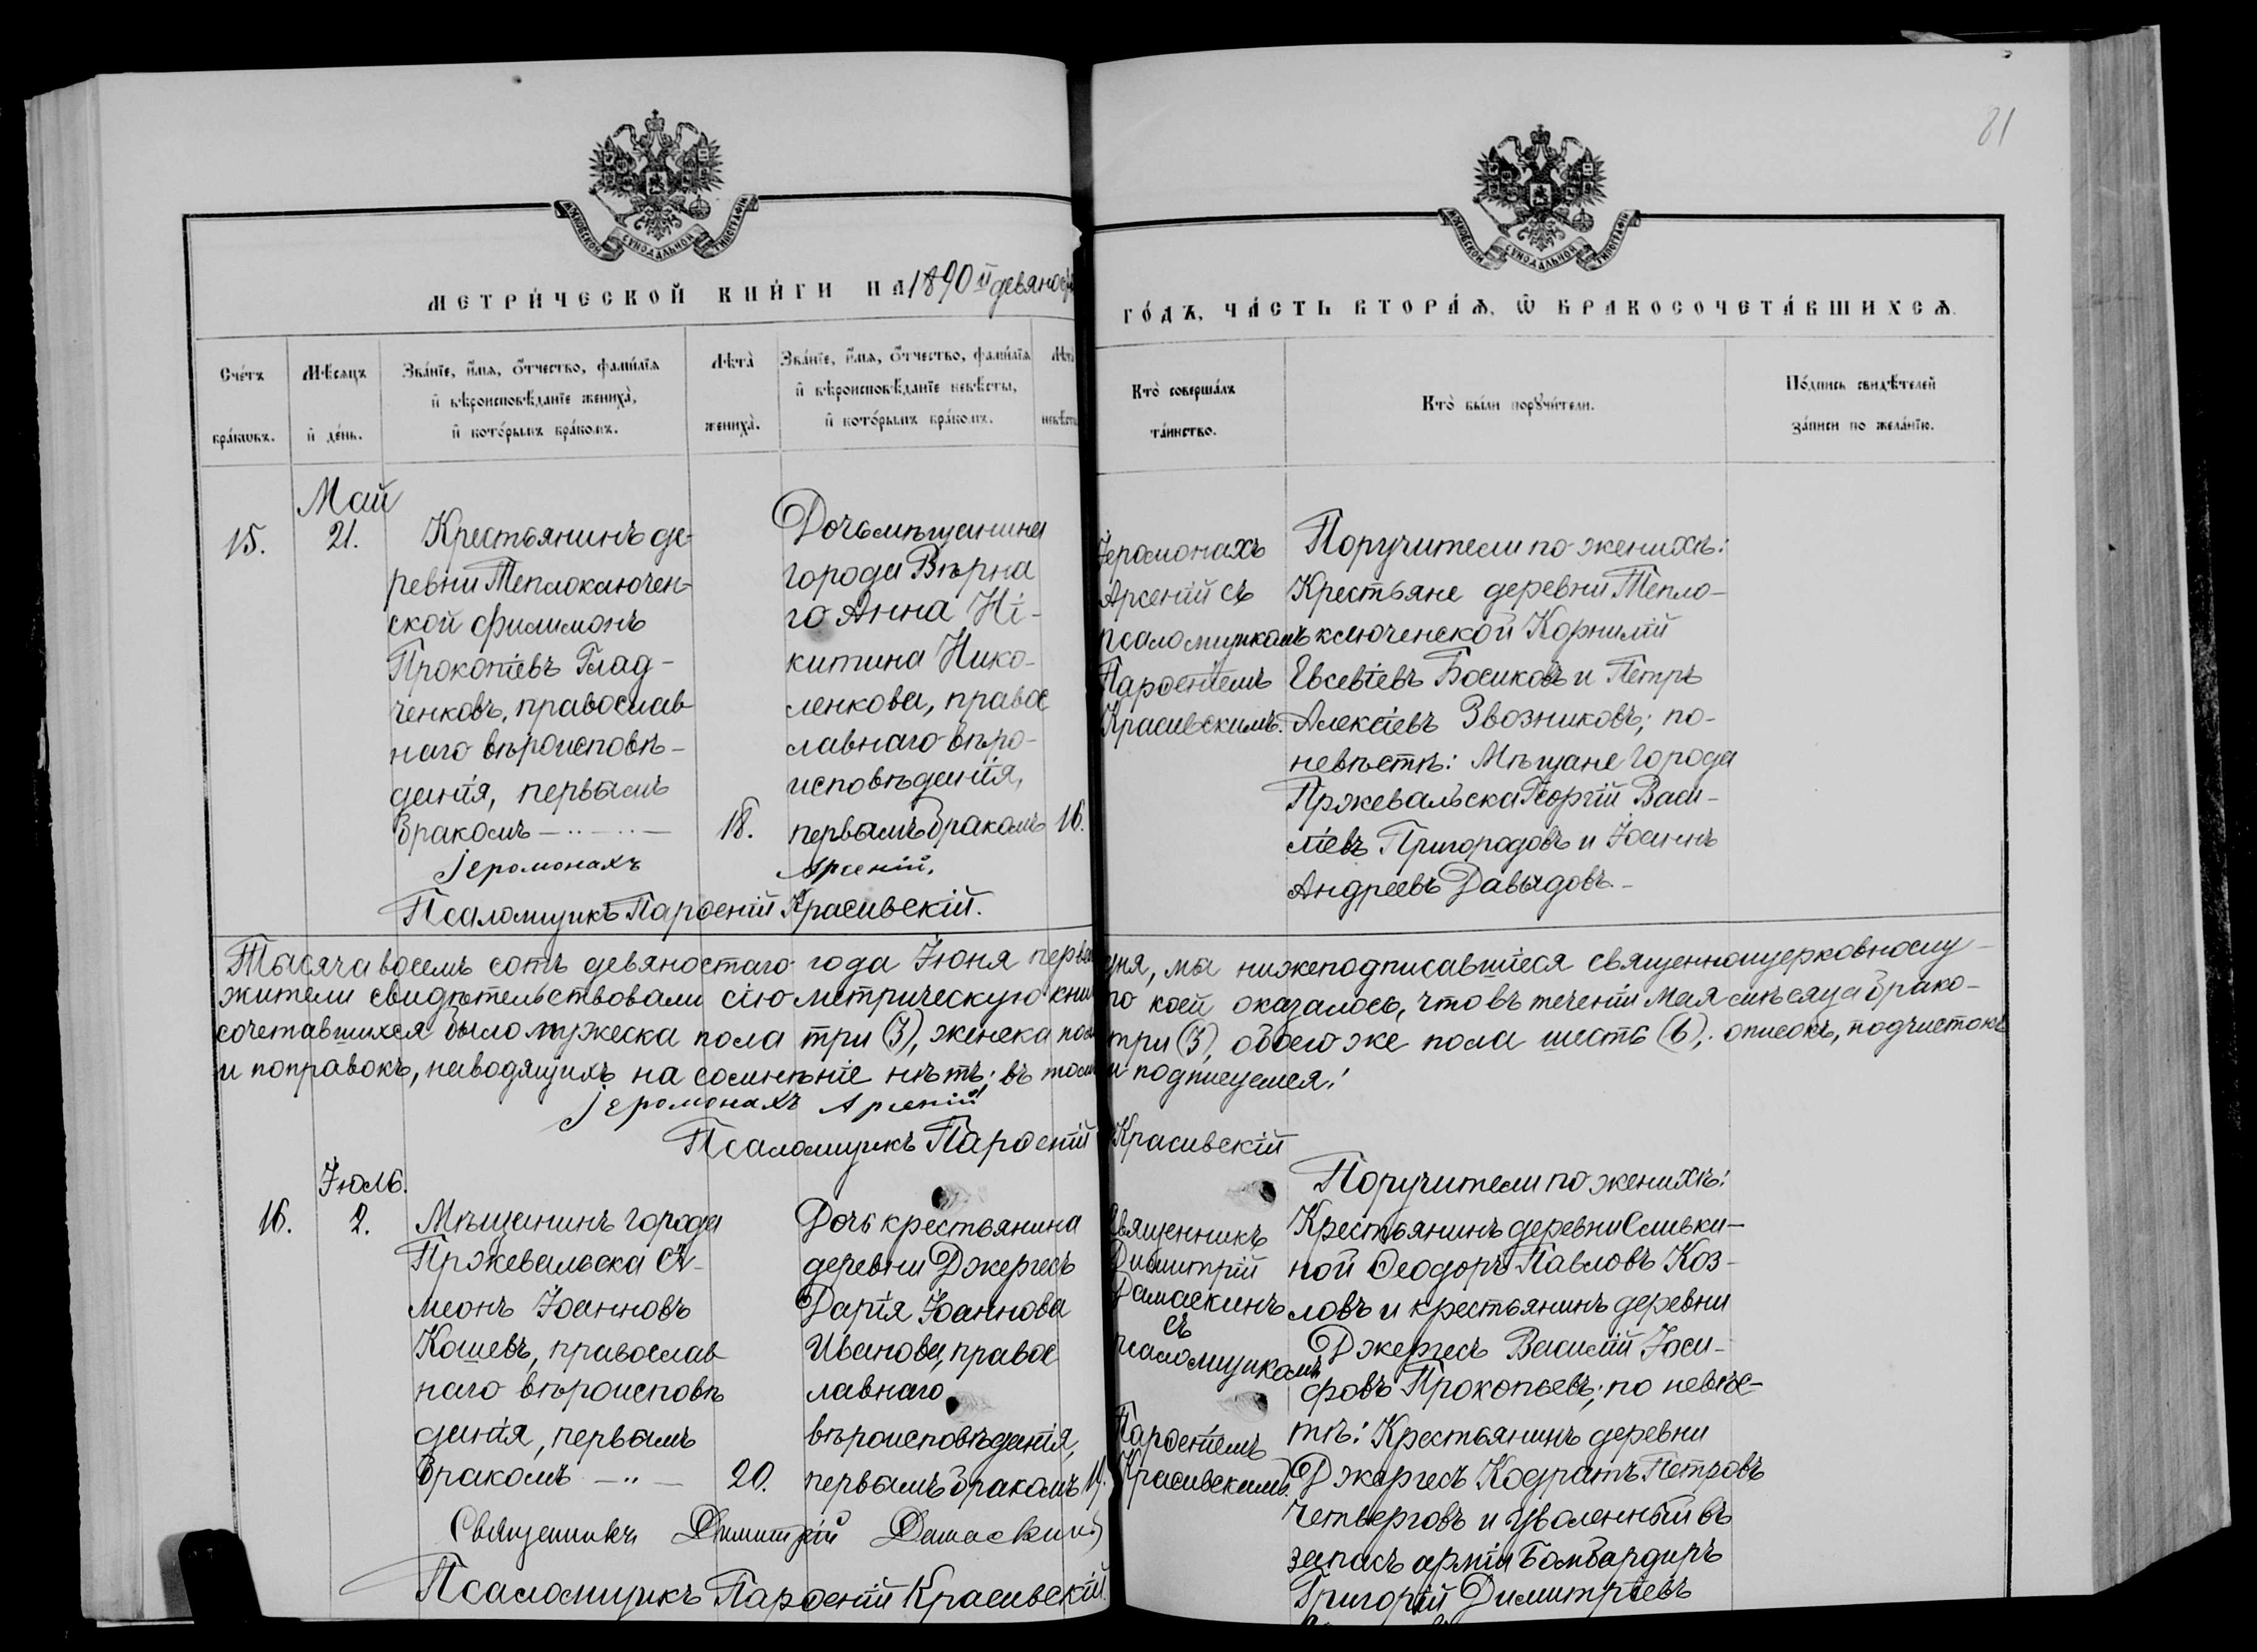 81
МОСКОВСКОЙ СѴНОДАЛЬНОЙ ТИПОГРАФІИ
МОСКОВСКОЙ СѴНОДАЛЬНОЙ ТИПОГРАФІИ
МЕТРИ́ЧЕСКОЙ КНИ́ГИ НА 1890 й девяно
ГО́ДЪ, ЧА́СТЬ ВТОРА́Я, Ѡ БРАКОСОЧЕТА́ВШИХСЯ.
Сче́тъ
бра́кωвъ.
Мѣ́сяцъ
и де́нь.
Зва́нїе, и́мя, о́тчество, фами́лїя
и вѣроисповѣ́данїе жениха̀,
и кото́рымъ бра́комъ.
Лѣта̀
жениха̀.
Зва́нїе, и́мя, о́тчество, фами́лїя
и вѣроисповѣ́данїе невѣ́сты,
и кото́рымъ бра́комъ.
Лѣта̀
невѣсты
Кто̀ соверша́лъ
та́инство.
Кто̀ бы́ли порꙋчи́тели.
По́дпись свидѣ́телей
за́писи по жела́нїю.
Май
15.
21.
Крестьянинъ де-
ревни Теплоключен-
ской Филимонъ
Прокопіевъ Глад-
ченковъ, православ
наго вѣроисповѣ-
данія, первымъ
бракомъ
18.
Дочь мѣщанина
города Вѣрна
го Анна Ні-
китина Нико-
ленкова, правос
лавнаго вѣро-
исповѣданія,
первымъ бракомъ
16.
Іеромонахъ
Арсеній съ
псаломщикомъ
Парѳеніемъ
Красивскимъ.
Поручители по женихѣ:
Крестьяне деревни Тепло-
ключенской Корнилій
Евсевіевъ Босиковъ и Петръ
Алексіевъ Звозниковъ; по-
невѣстѣ: Мѣщане города
Пржевальска Георгій Васи-
ліевъ Пригородовъ и Іоаннъ
Андреевъ Давыдовъ.
Іеромонахъ Арсеній.
Псаломщикъ Парѳеній Красивскій.
Тысяча восемь сотъ девяностаго года Іюня перва дня, мы нижеподписавшіеся священноцерковнослу-
жители свидѣтельствовали сію метрическую книг по коей оказалось, что въ теченіи Мая мѣсяца брако-
сочетавшихся было мужеска пола три (3), женска пола три (3), обоего же пола шесть (6); описокъ, подчистокъ
и поправокъ, наводящихъ на сомнѣніе нѣтъ; въ томъ и подписуемся:
Іеромонахъ Арсеній
Псаломщикъ Парѳеній Красивскій
Іюль.
16.
2.
Мѣщанинъ города
Пржевальска Си-
меонъ Іоанновъ
Кошевъ, православ
наго вѣроисповѣ
данія, первымъ
бракомъ
20.
Дочь крестьянина
деревни Джергесъ
Дарія Іоаннова
Иванова, правос
лавнаго
вѣроисповѣданія,
первымъ бракомъ
Священникъ
Димитрій
Дамаскинъ
съ
псаломщикомъ
Парѳеніемъ
Красивскимъ.
Поручители по женихѣ:
Крестьянинъ деревни Сливки-
ной Ѳеодоръ Павловъ Коз-
ловъ и крестьянинъ деревни
Джергесъ Василій Іоси-
фовъ Прокопьевъ; по невѣс-
тѣ: Крестьянинъ деревни
Джергесъ Кодратъ Петровъ
Четверговъ и уволенный въ
запасъ арміи Бомбардиръ
Григорій Димитріевъ
Священникъ Димитрій Дамаскинъ
Псаломщикъ Парѳеній Красивскій.